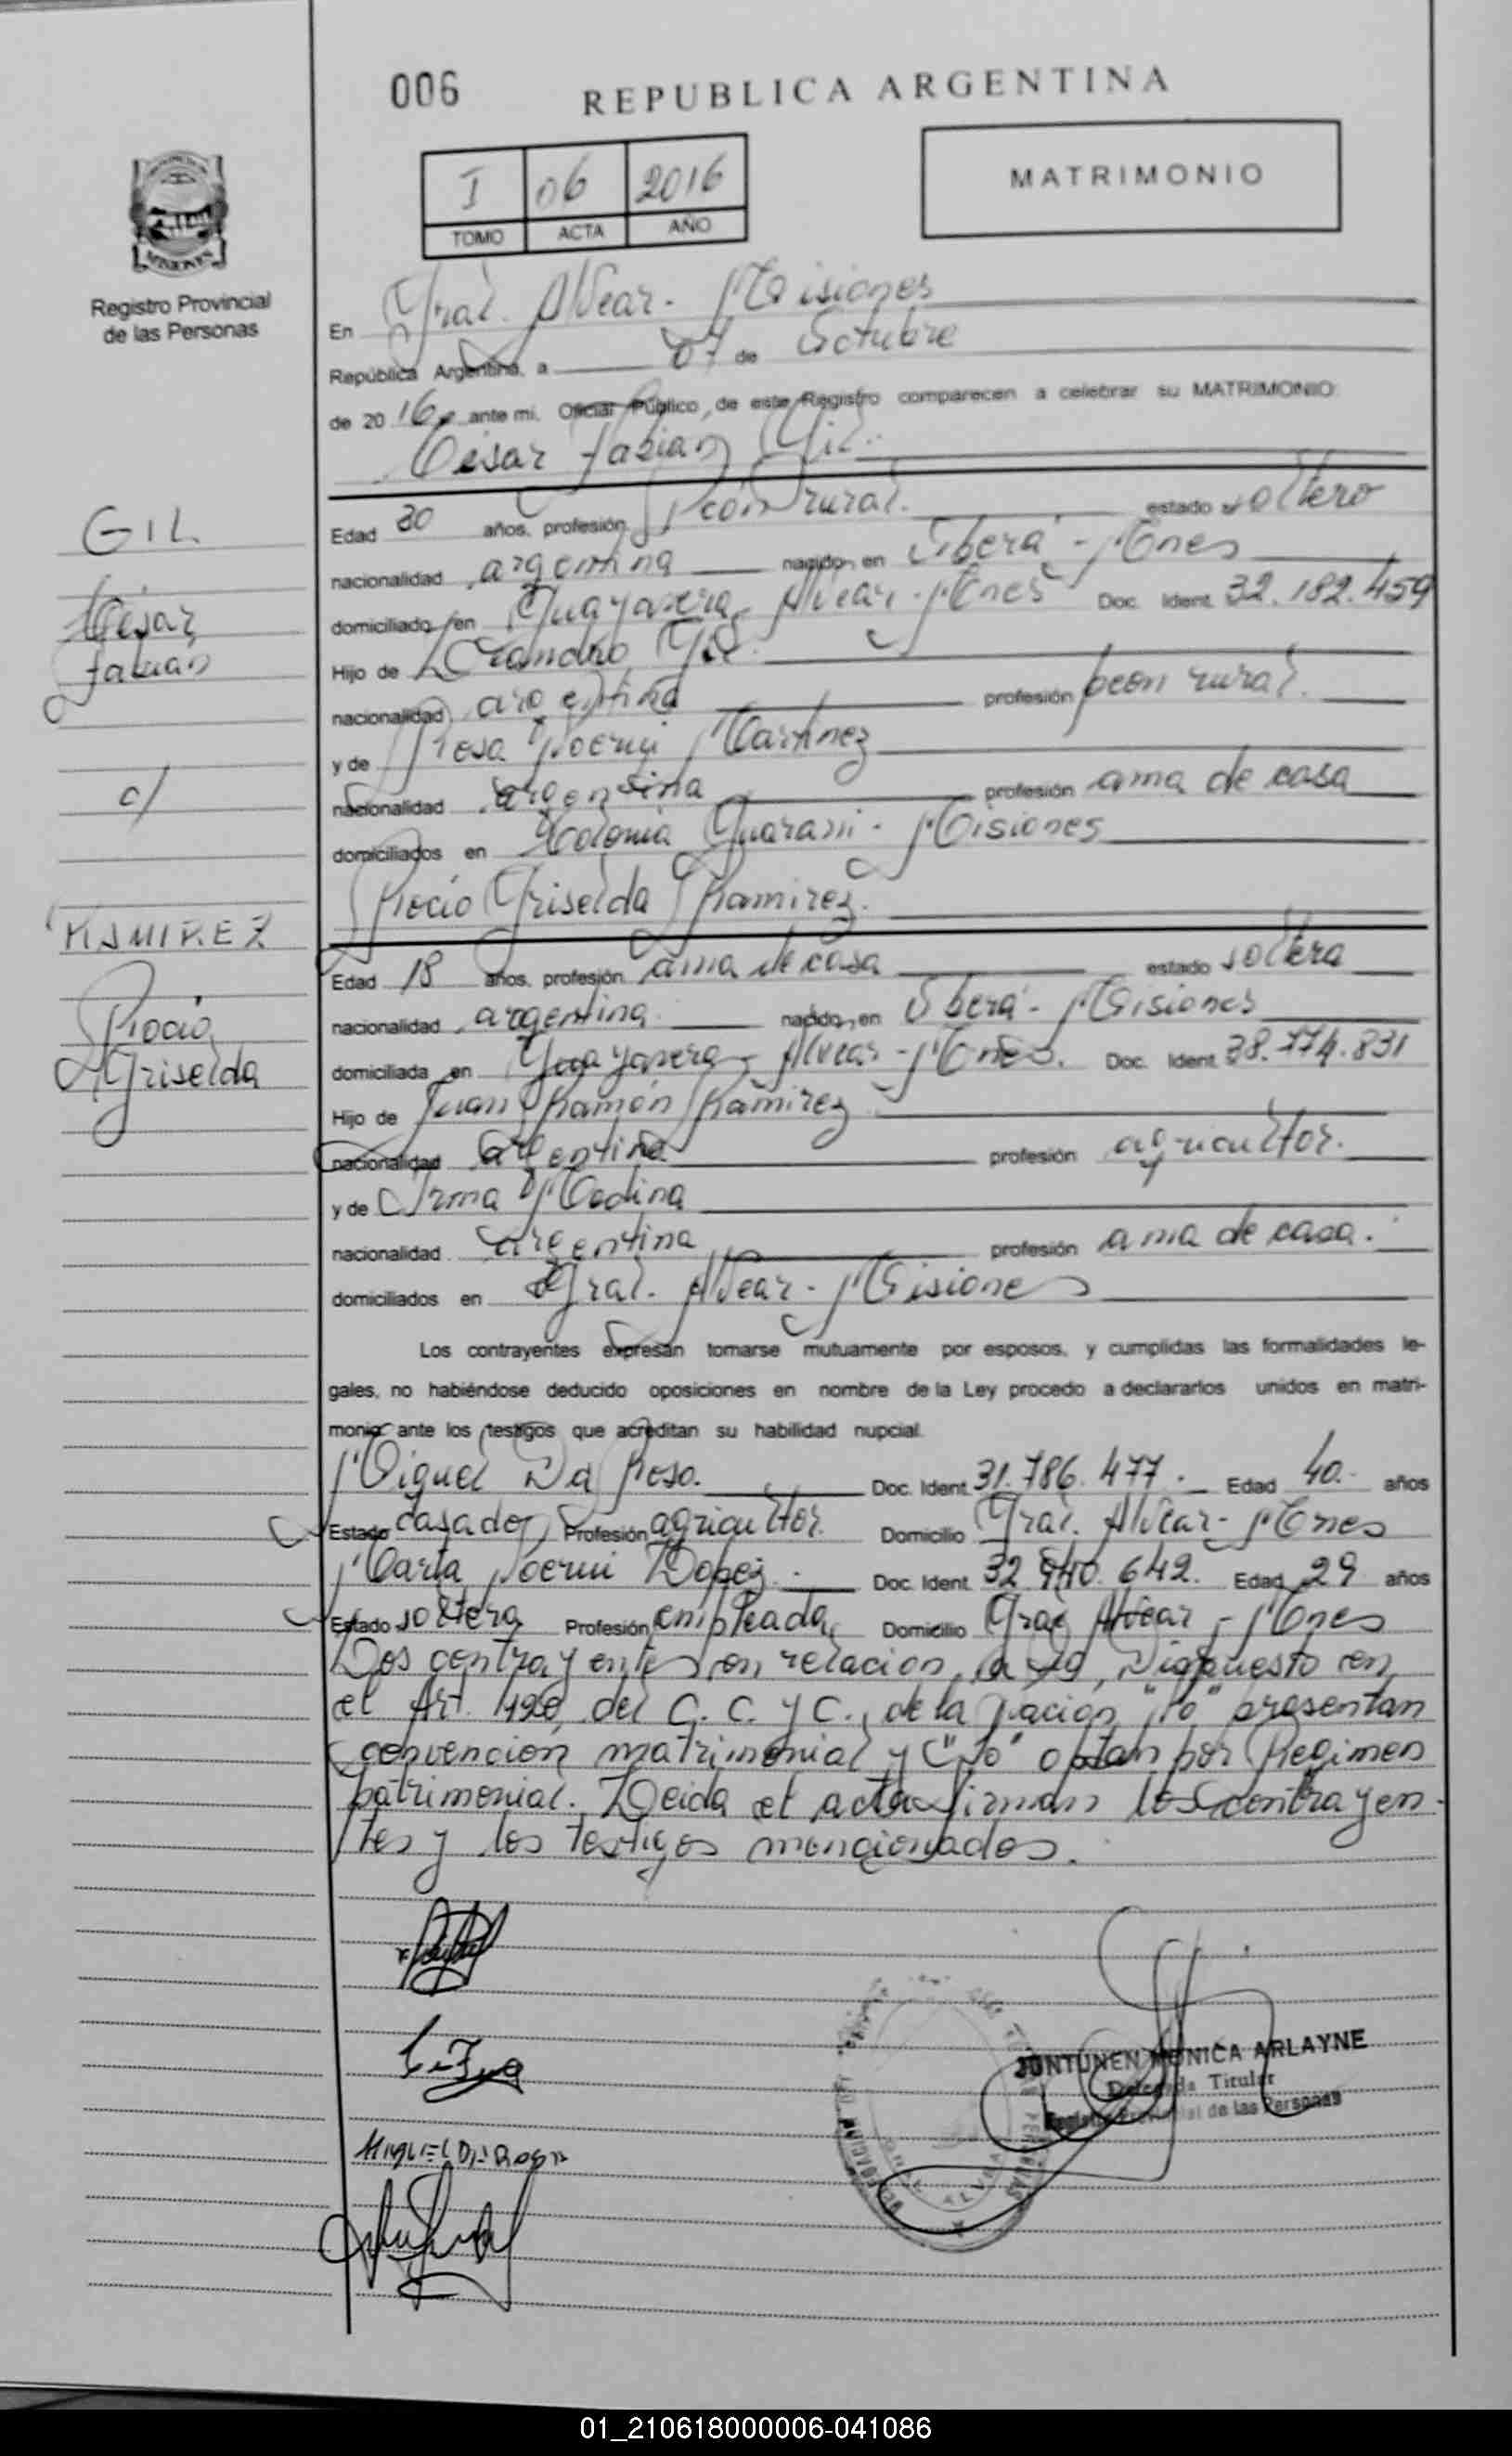 006
REPUBLICA ARGENTINA
I 06 2016
TOMO ACTA AÑO
MATRIMONIO
MISIONES
Registro Provincial
de las Personas
En Gral. Alvear - Misiones
República Argentina, a 07 de Octubre
de 2016 ante mi, Oficial Público, de este Registro comparecen a celebrar su MATRIMONIO:
César Fabian Gil.
GIL
César
Fabian
c/
RAMIREZ
Rocio
Griselda
Edad 30 años, profesión Peón rural. estado soltero
nacionalidad argentina nacido en Oberá - Mnes
domiciliado en Guayabera - Alvear - Mnes Doc. Ident. 32.182.459
Hijo de Gil.
nacionalidad argentina profesión peon rural.
y de Rosa Noemi Martinez
nacionalidad argentina profesión ama de casa
domiciliados en Colonia Guarani - Misiones
Rocio Griselda Ramirez.
Edad 18 años, profesión ama de casa estado soltera
nacionalidad argentina nacido en Oberá - Misiones
domiciliada en Guayabera - Alvear - Mnes. Doc. Ident. 38.774.831
Hijo de Juan Ramón Ramirez
nacionalidad argentina profesión agricultor.
y de Irma Medina
nacionalidad argentina profesión ama de casa.
domiciliados en Gral. Alvear - Misiones
Los contrayentes expresan tomarse mutuamente por esposos, y cumplidas las formalidades le-
gales, no habiéndose deducido oposiciones en nombre de la Ley procedo a declararlos unidos en matri-
monio ante los testigos que acreditan su habilidad nupcial.
Miguel Da Rosa. Doc. Ident. 31.786.477. Edad 40. años
Estado casado Profesión agricultor Domicilio Gral. Alvear - Mnes
Maria Noemi Lopez. Doc. Ident. 32.940.642. Edad 29 años
Estado soltera Profesión empleada Domicilio Gral Alvear - Mnes
Los contrayentes en relacion a lo dispuesto en
el Art. 420 del C. C. y C. de la Nacion "No" presentan
convencion matrimonial y "No" optan por Regimen
patrimonial. Leida el acta firman los contrayen-
tes y los testigos mencionados.
JUNTUNEN MONICA ARLAYNE
Delegada Titular
Registro Provincial de las Personas
MIGUEL DA ROSA
01_210618000006-041086